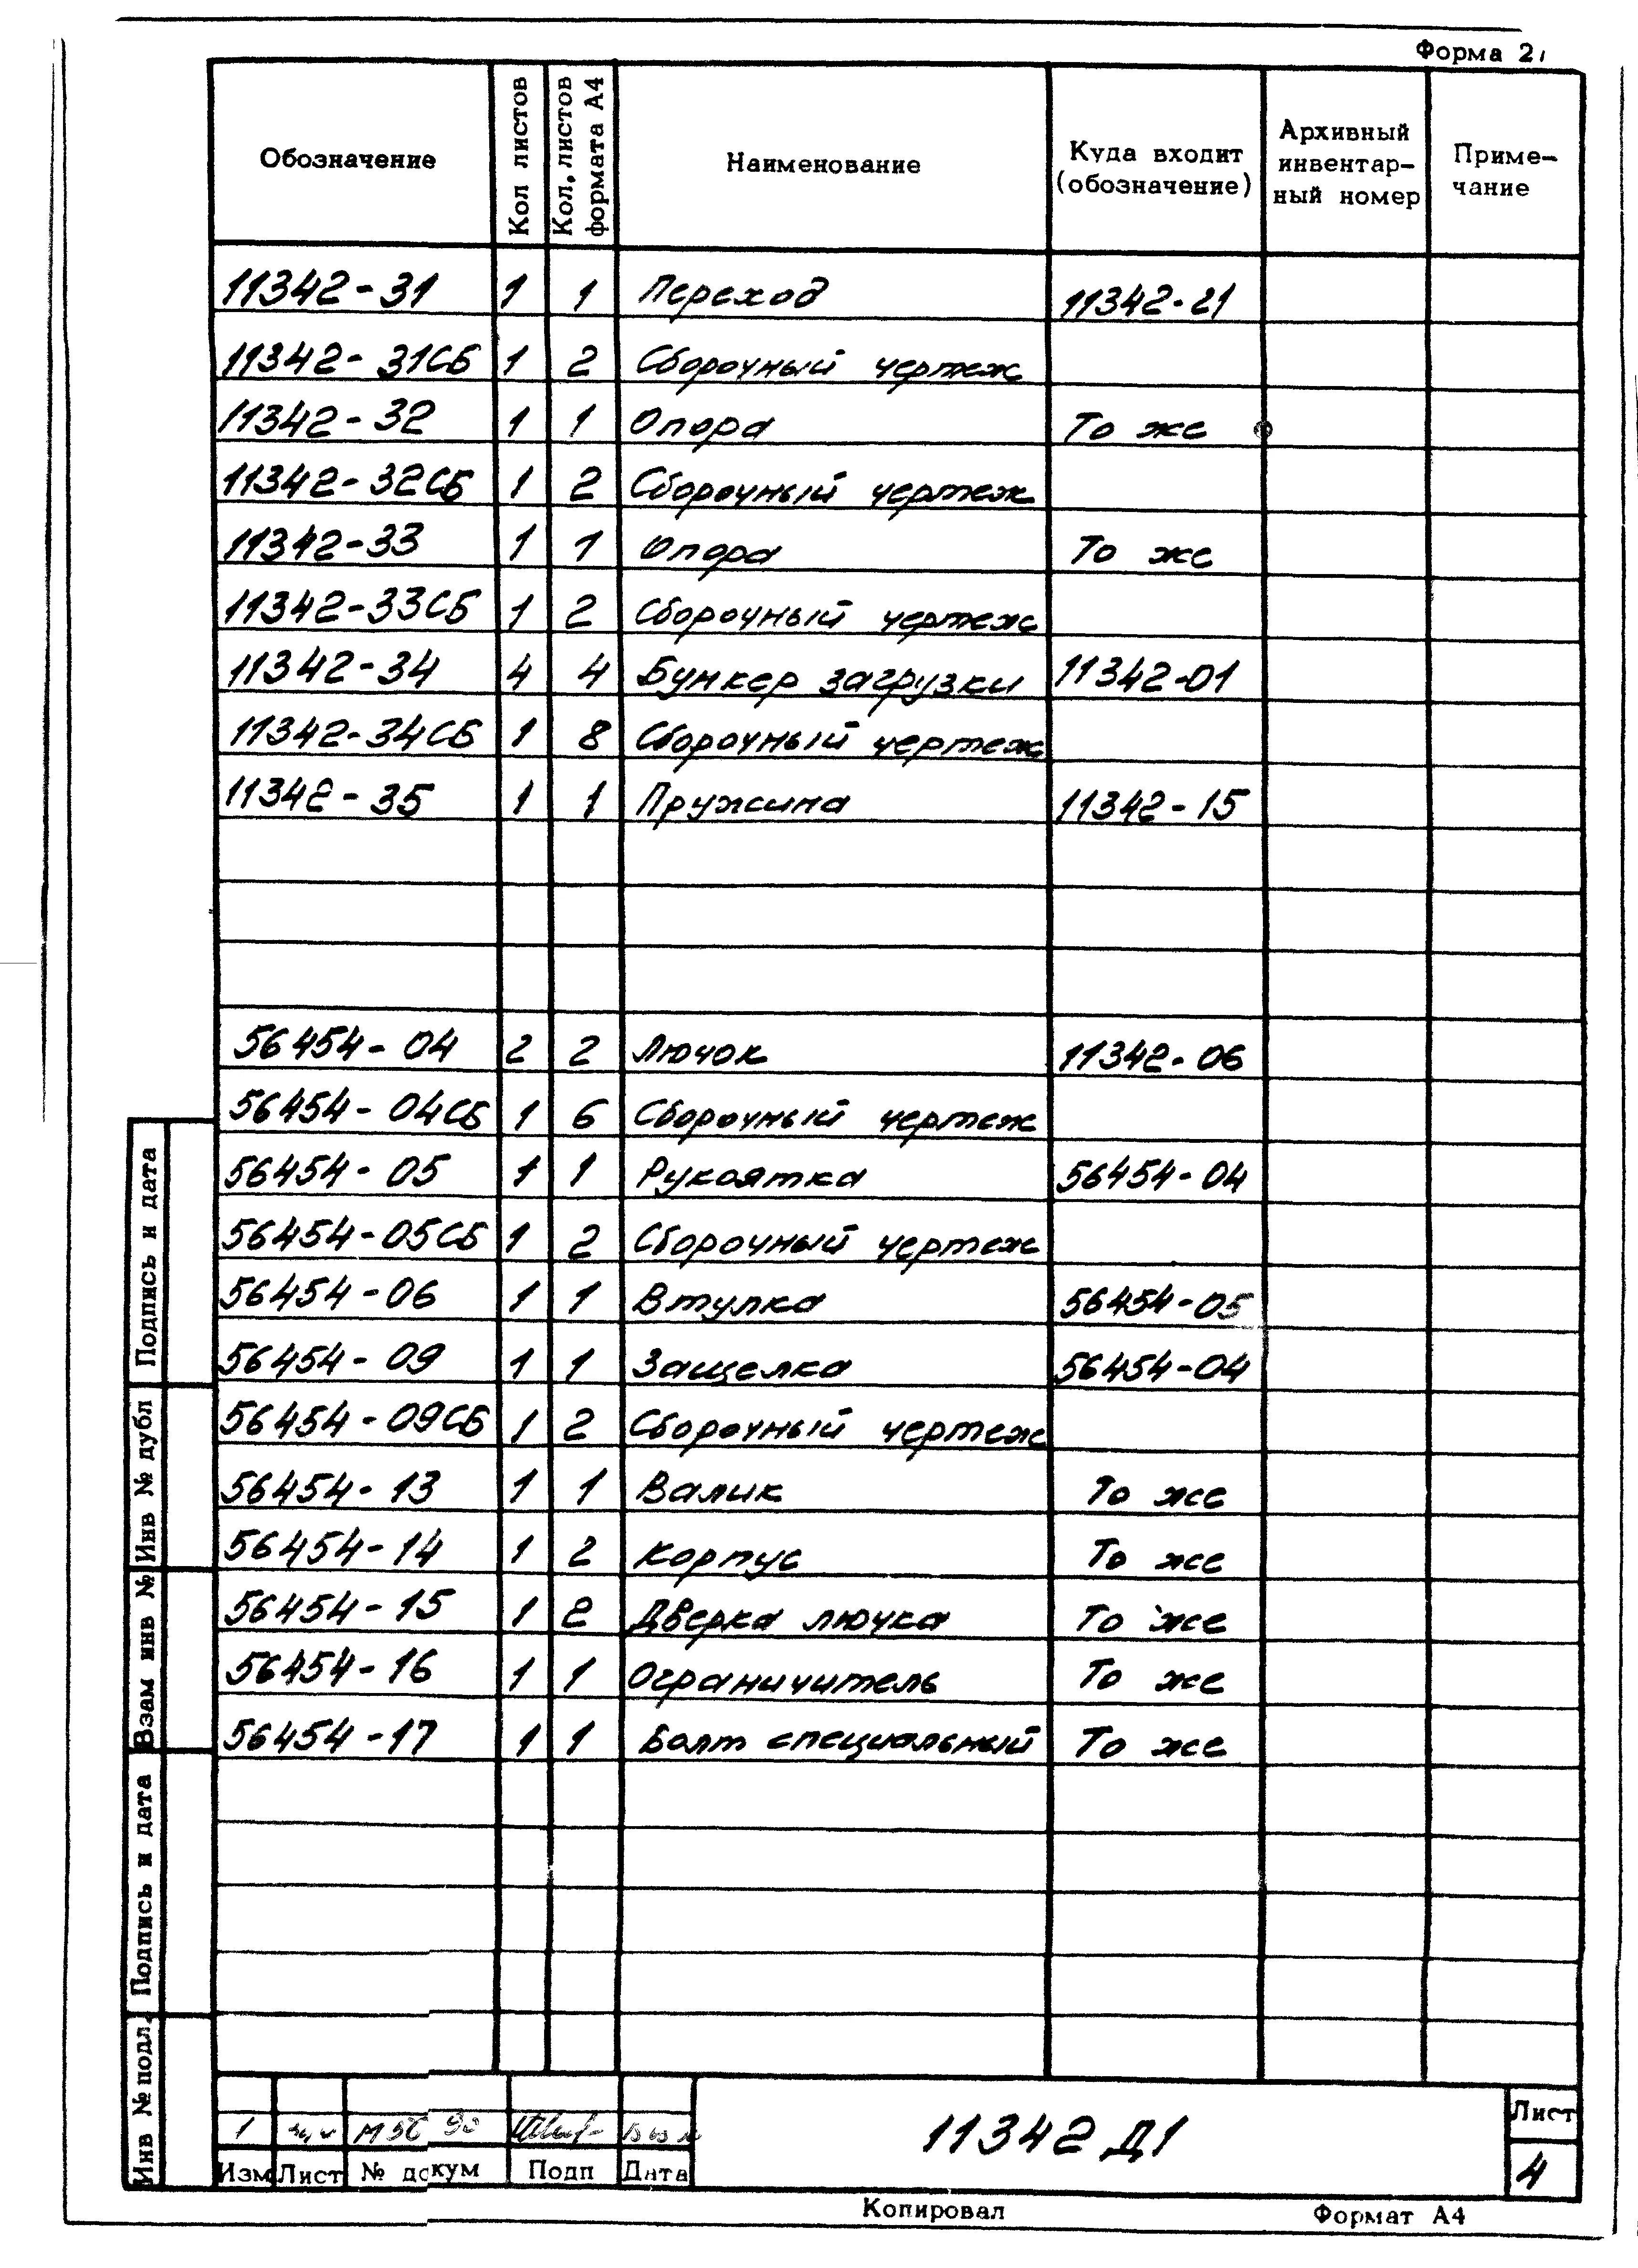 Форма 2
Обозначение Кол листов Кол. листов формата А4 Наименование Куда входит (обозначение) Архивный инвентар-ный номер Приме-чание
11342-31 1 1 Переход 11342-21
11342-31СБ 1 2 Сборочный чертеж
11342-32 1 1 Опора То же
11342-32СБ 1 2 Сборочный чертеж
11342-33 1 1 Опора То же
11342-33СБ 1 2 Сборочный чертеж
11342-34 4 4 Бункер загрузки 11342-01
11342-34СБ 1 8 Сборочный чертеж
11342-35 1 1 Пружина 11342-15
56454-04 2 2 Лючок 11342-06
56454-04СБ 1 6 Сборочный чертеж
56454-05 1 1 Рукоятка 56454-04
56454-05СБ 1 2 Сборочный чертеж
56454-06 1 1 Втулка 56454-05
56454-09 1 1 Защелка 56454-04
56454-09СБ 1 2 Сборочный чертеж
56454-13 1 1 Валик То же
56454-14 1 2 Корпус То же
56454-15 1 2 Дверка лючка То же
56454-16 1 1 Ограничитель То же
56454-17 1 1 Болт специальный То же
Подпись и дата
Инв № дубл
Взам инв №
Подпись и дата
Инв № подл.
1
Изм Лист № докум Подп Дата
11342 Д1
Лист
4
Копировал Формат А4